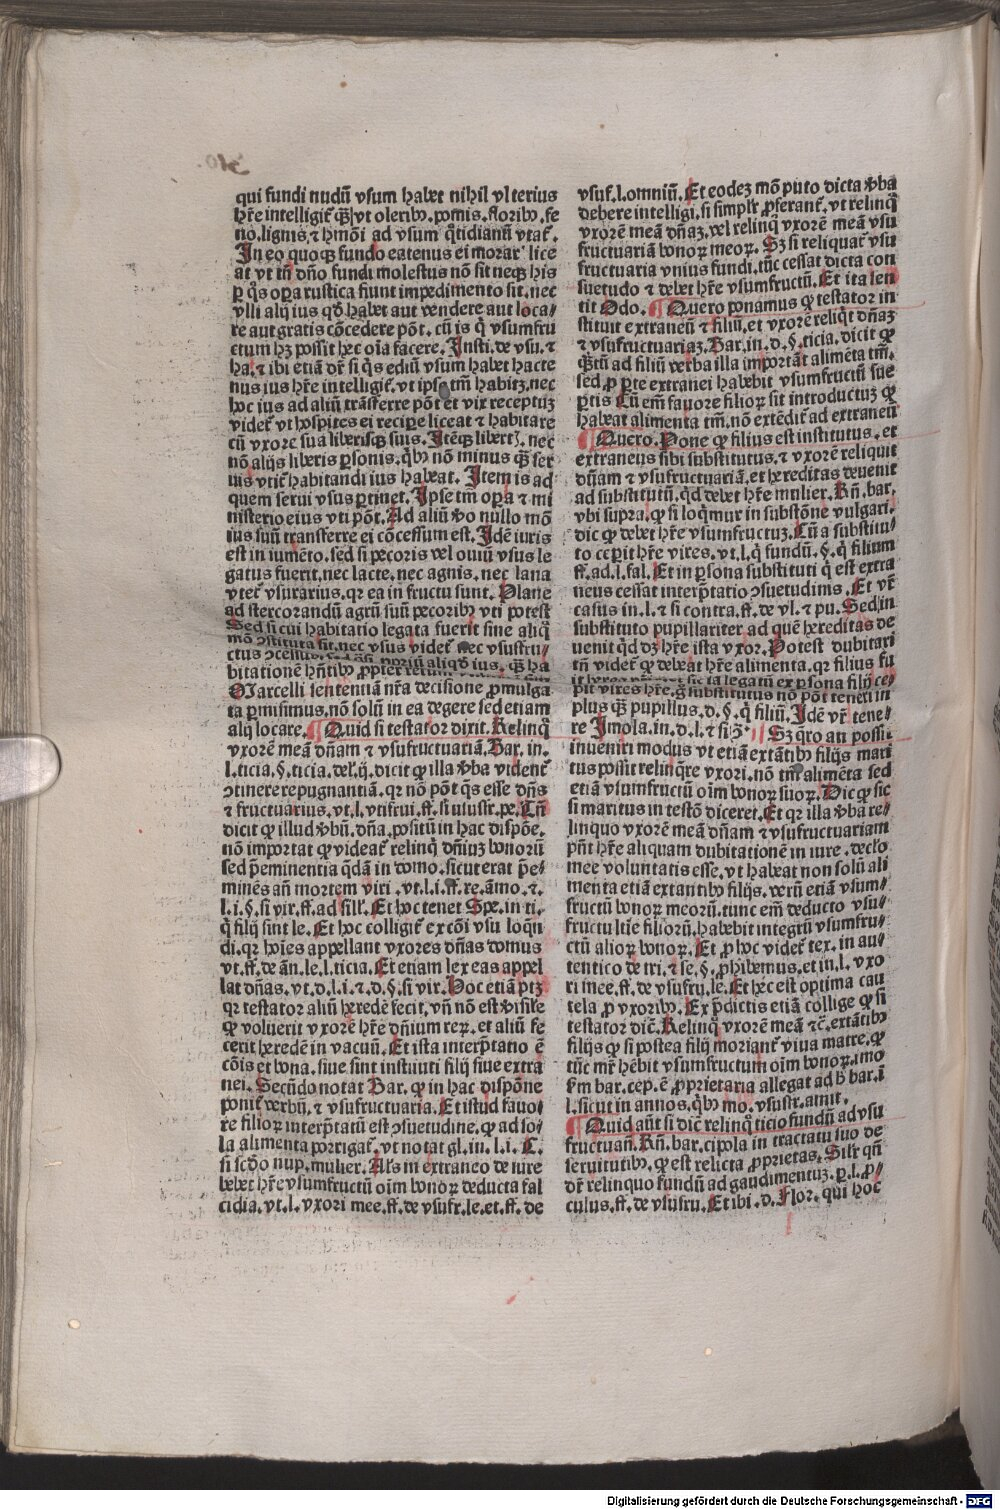 qui fundi nudū vsum habet nihil vlterius
hr̄e intelligit᷑ qȝ̄ vt oleribꝰ.pomis.floribꝰ.fe
no.lignis.⁊ hmōi ad vsum qͥtidianū vtat᷑.
In eo quoqȝ fundo eatenus ei morar᷑ lice
at vt tn̄ dn̄o fundi molestus nō sit neqȝ his
ꝑ qͦs oꝑa rustica fiunt impedimento sit.nec
vlli alij ius qd̄ habet aut vendere aut loca⸗
re aut gratis cōcedere pōt.cū is qͥ vsumfru
ctum hȝ possit hec oīa facere.Insti.de vsu.⁊
ha.⁊ ibi etiā dr̄ si qͥs ediū vsum habet hacte
nus ius hr̄e intelligit᷑.vt ipse tm̄ habitȝ.nec
hoc ius ad aliū trāsferre pōt et vix receptuȝ
videt᷑ vt hospites ei recipe liceat ⁊ habitare
cū vxore sua liberisqȝ suis.Itēqȝ libertꝭ.nec
nō alijs liberis ꝑsonis.qͥbꝰ nō minus qȝ̄ ser
uis vtit᷑ habitandi ius habeat.Item is ad
quem serui vsus ꝑtinet.Ipse tm̄ oꝑa ⁊ mi
nisterio eius vti pōt.Ad aliū v̄o nullo mō
ius suū transferre ei cōcessum est.Idē iuris
est in iumēto.sed si pecoris vel ouiū vsus le
gatus fuerit.nec lacte.nec agnis.nec lana
vtet᷑ vsurarius.qꝛ ea in fructu sunt.Plane
ad stercorandū agrū suū pecoribꝰ vti potest
Sed si cui habitatio legata fuerit sine aliqͦ
mō ↄstituta sit.nec vsus videt᷑ nec vsusfru⸗
bitatione hn̄tibꝰ propter
Marcelli sententiā nr̄a decisione ꝓmulga
ta ꝑmisimus.nō solū in ea degere sed etiam
alijs locare.¶Quid si testator dixit.Relinqͦ
vxorē meā dn̄am ⁊ vsufructuariā.Bar.in.
l.ticia.§.ticia.del.ij.dicit ꝙ illa v̄ba vident᷑
ↄtinere repugnantiā.qꝛ nō pōt qͥs esse dn̄s
⁊ fructuarius.vt.l.vtifrui.ff.si ususfr.pe.Cū
dicit ꝙ illud v̄bū.dn̄a.positū in hac dispōe.
nō importat ꝙ videat᷑ relinqͥ dn̄iuȝ bonorū
sed p̄eminentia qͣdā in domo.sicut erat p̄e⸗
minēs an̄ mortem viri.vt.l.i.ff.re.amo.⁊.
l.i.§.si vir.ff.ad sill.Et hoc tenet Spe.in ti.
qͥ filij sint le.Et hoc colligit᷑ ex cōi vsu loqn̄
di.qꝛ hoīes appellant vxores dn̄as domus
vt.ff.de an̄.le.l.ticia.Et etiam lex eas appel
lat dn̄as.vt.d.l.i.⁊.d.§.si vir.Hoc etiā ptȝ
qꝛ testator aliū heredē fecit.vn̄ nō est v̄isil̄e
ꝙ voluerit vxorē hr̄e dn̄ium reꝝ.et aliū fe
cerit heredē in vacuū.Et ista interp̄tatio ē
cōis et bona.siue sint instituti filij siue extra
nei.Secūdo notat Bar.ꝙ in hac dispōne
ponit᷑ verbū.⁊ vsufructuaria.Et istud fauo⸗
re filioꝝ interp̄tatū est ↄsuetudine.ꝙ ad so⸗
la alimenta porrigat᷑.vt notat gl.in.l.i.C.
si scd̄o nup.mulier.Al̄s in extraneo de iure
debet hr̄e vsumfructū oīm bonoꝝ deducta fal
cidia.vt.l.vxori mee.ff.de vsufr.le.et.ff.de
vsuf.l.omniū.Et eodeȝ mō puto dicta v̄ba
debere intelligi.si simplr̄ ꝓferant᷑.vt relinqͦ
vxorē meā dn̄aȝ.vel relinqͦ vxorē meā vsu
fructuariā bonoꝝ meoꝝ.Sȝ si reliquat᷑ vsu
fructuaria vnius fundi.tūc cessat dicta con
suetudo ⁊ debet hr̄e vsumfructū.Et ita sen
tit Odo.¶Quero ponamus ꝙ testator in
stituit extraneū ⁊ filiū.et vxorē reliqͥt dn̄aȝ
⁊ vsufructuariaȝ.Bar.in.d.§.ticia.dicit ꝙ
qȝ̄tū ad filiū verba illa important᷑ alimēta tm̄.
sed ꝓ ꝑte extranei habebit vsumfructū sue
ꝑtis Cū em̄ fauore filioꝝ sit introductuȝ ꝙ
habeat alimenta tm̄.nō extēdit᷑ ad extraneū
¶Quero.Pone ꝙ filius est institutus.et
extraneus sibi substitutus.⁊ vxorē reliquit
dn̄am ⁊ vsufructuariā.et hereditas deuenit
ad substitutū.qͥd debet hr̄e mulier.Rn̄.bar.
vbi supra.ꝙ si loqͥmur in substōne vulgari.
dic ꝙ debet hr̄e vsumfructuȝ.Cū a substitu⸗
to ceperit hr̄e vires.vt.l.qͥ fundū.§.qͥ filium
ff.ad.l.fal.Et in ꝑsona substituti qͥ est extra
neus cessat interp̄tatio ↄsuetudinis.Et vr̄
casus in.l.⁊ si contra.ff.de vl.⁊ pu.Sed in
substituto pupillariter ad quē hereditas de
uenit qͥd dȝ hr̄e ista vxor.Potest dubitari
tn̄ videt᷑ ꝙ debeat hr̄e alimenta.qꝛ filius fu
pit vires hr̄e.g̊ substitutus nō pōt teneri in
plus qȝ̄ pupillus.d.§.qͥ filiū.Idē vr̄ tene⸗
re Imola.in.d.l.⁊ si ꝯͣ.¶Sȝ qͤro an possit
inueniri modus vt etiā extātibꝰ filijs mari
tus possit relinqͤre vxori.nō tm̄ alimēta sed
etiā vsumfructū oīm bonoꝝ suoꝝ.Dic ꝙ sic
si maritus in testō diceret.Et qꝛ illa v̄ba re⸗
linquo vxorē meā dn̄am ⁊ vsufructuariam
pn̄t hr̄e aliquam dubitationē in iure.declͦo
mee voluntatis esse.vt habeat non solū ali
menta etiā extantibꝰ filijs.verū etiā vsum⸗
fructū bonoꝝ meorū.tunc em̄ deducto vsu⸗
fructu ltīe filiorū.habebit integrū vsumfru⸗
ctū alioꝝ bonoꝝ.Et ꝓ hoc videt᷑ tex.in au⸗
tentico de tri.⁊ se.§.ꝓhibemus.et in.l.vxo
ri mee.ff.de vsufru.le.Et hec est optima cau
tela ꝓ vxoribꝰ.Ex p̄dictis etiā collige ꝙ si
testator dic̄.Relinqͦ vxorē meā ⁊c̄.extātibꝰ
filijs ꝙ si postea filij moriant᷑ viua matre.ꝙ
tūc mr̄ hēbit vsumfructum oīm bonoꝝ.imo
ẜm bar.cep.ē ꝓprietaria allegat ad h̄ bar.ī
l.sicut in annos.qͥbꝰ mo.vsusfr.amit.
¶Quid aūt si dic̄.relinqͦ ticio fundū ad vsu
fructuan̄.Rn̄.bar.cipola in tractatu suo de
seruitutibꝰ.ꝙ est relicta ꝓprietas.Silr̄ qn̄
dr̄ relinquo fundū ad gaudimentuȝ.ꝑ.l.ꝓ⸗
culus.ff.de vsufru.Et ibi.d.Flor.qui hoc
Digitalisierung gefördert durch die Deutsche Forschungsgemeinschaft - DFG